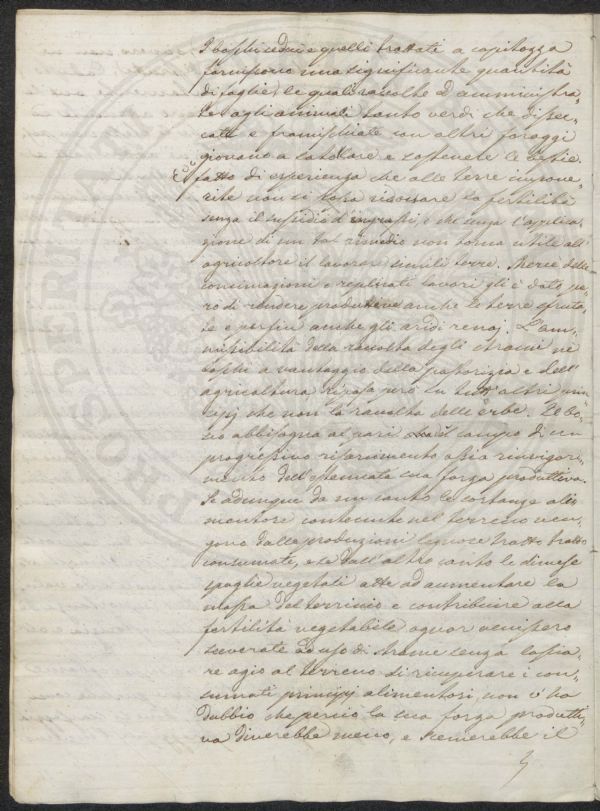 I boschi cedui e quelli trattati a capitozza
forniscono una significante quantità
di foglie, le quali raccolte ed amministra-
te agli animali tanto verdi che disec-
cate e framischiate con altri foraggi
giovano a satolare e sostenere le bestie.
È fatto di esperienza che alle terre
non si possa la fertilità
senza il sussidio d'ingrassi, e che senza l'applica-
zione di un tal rimedio non torna utile all'
agricoltore il lavorare simili terre. Mercè delle
concimazioni e replicati lavori gli è dato pe-
rò di rendere produttive anche le terre sfrutta-
te e persin anche gli aridi renaj. L'am-
missibilità della raccolta degli strami ne'
boschi a vantaggio della pastorizia e dell'
agricoltura riposa però su tutt'altri prin-
cipj che non la raccolta delle erbe. Il bo-
sco abbisogna al pari del campo di un
progressivo ristoramento ossia rinvigori-
mento dell'estenuata sua forza produttiva.
Se adunque da un canto le sostanze ali-
mentare contenute nel terreno ven-
gono dalla produzioni legnose tratto tratto
consumate, e se dall'altro canto le dimesse
spoglie vegetali atte ad aumentare la
massa del terriccio e contribuire alla
fertilità vegetabile ognor venissero
sceverate ad uso di strame senza lascia-
re agio al terreno di ricuperare i con-
sumati principj alimentori, non v'ha
dubbio che perciò la sua forza produtti-
va diverebbe meno, e scemerebbe il